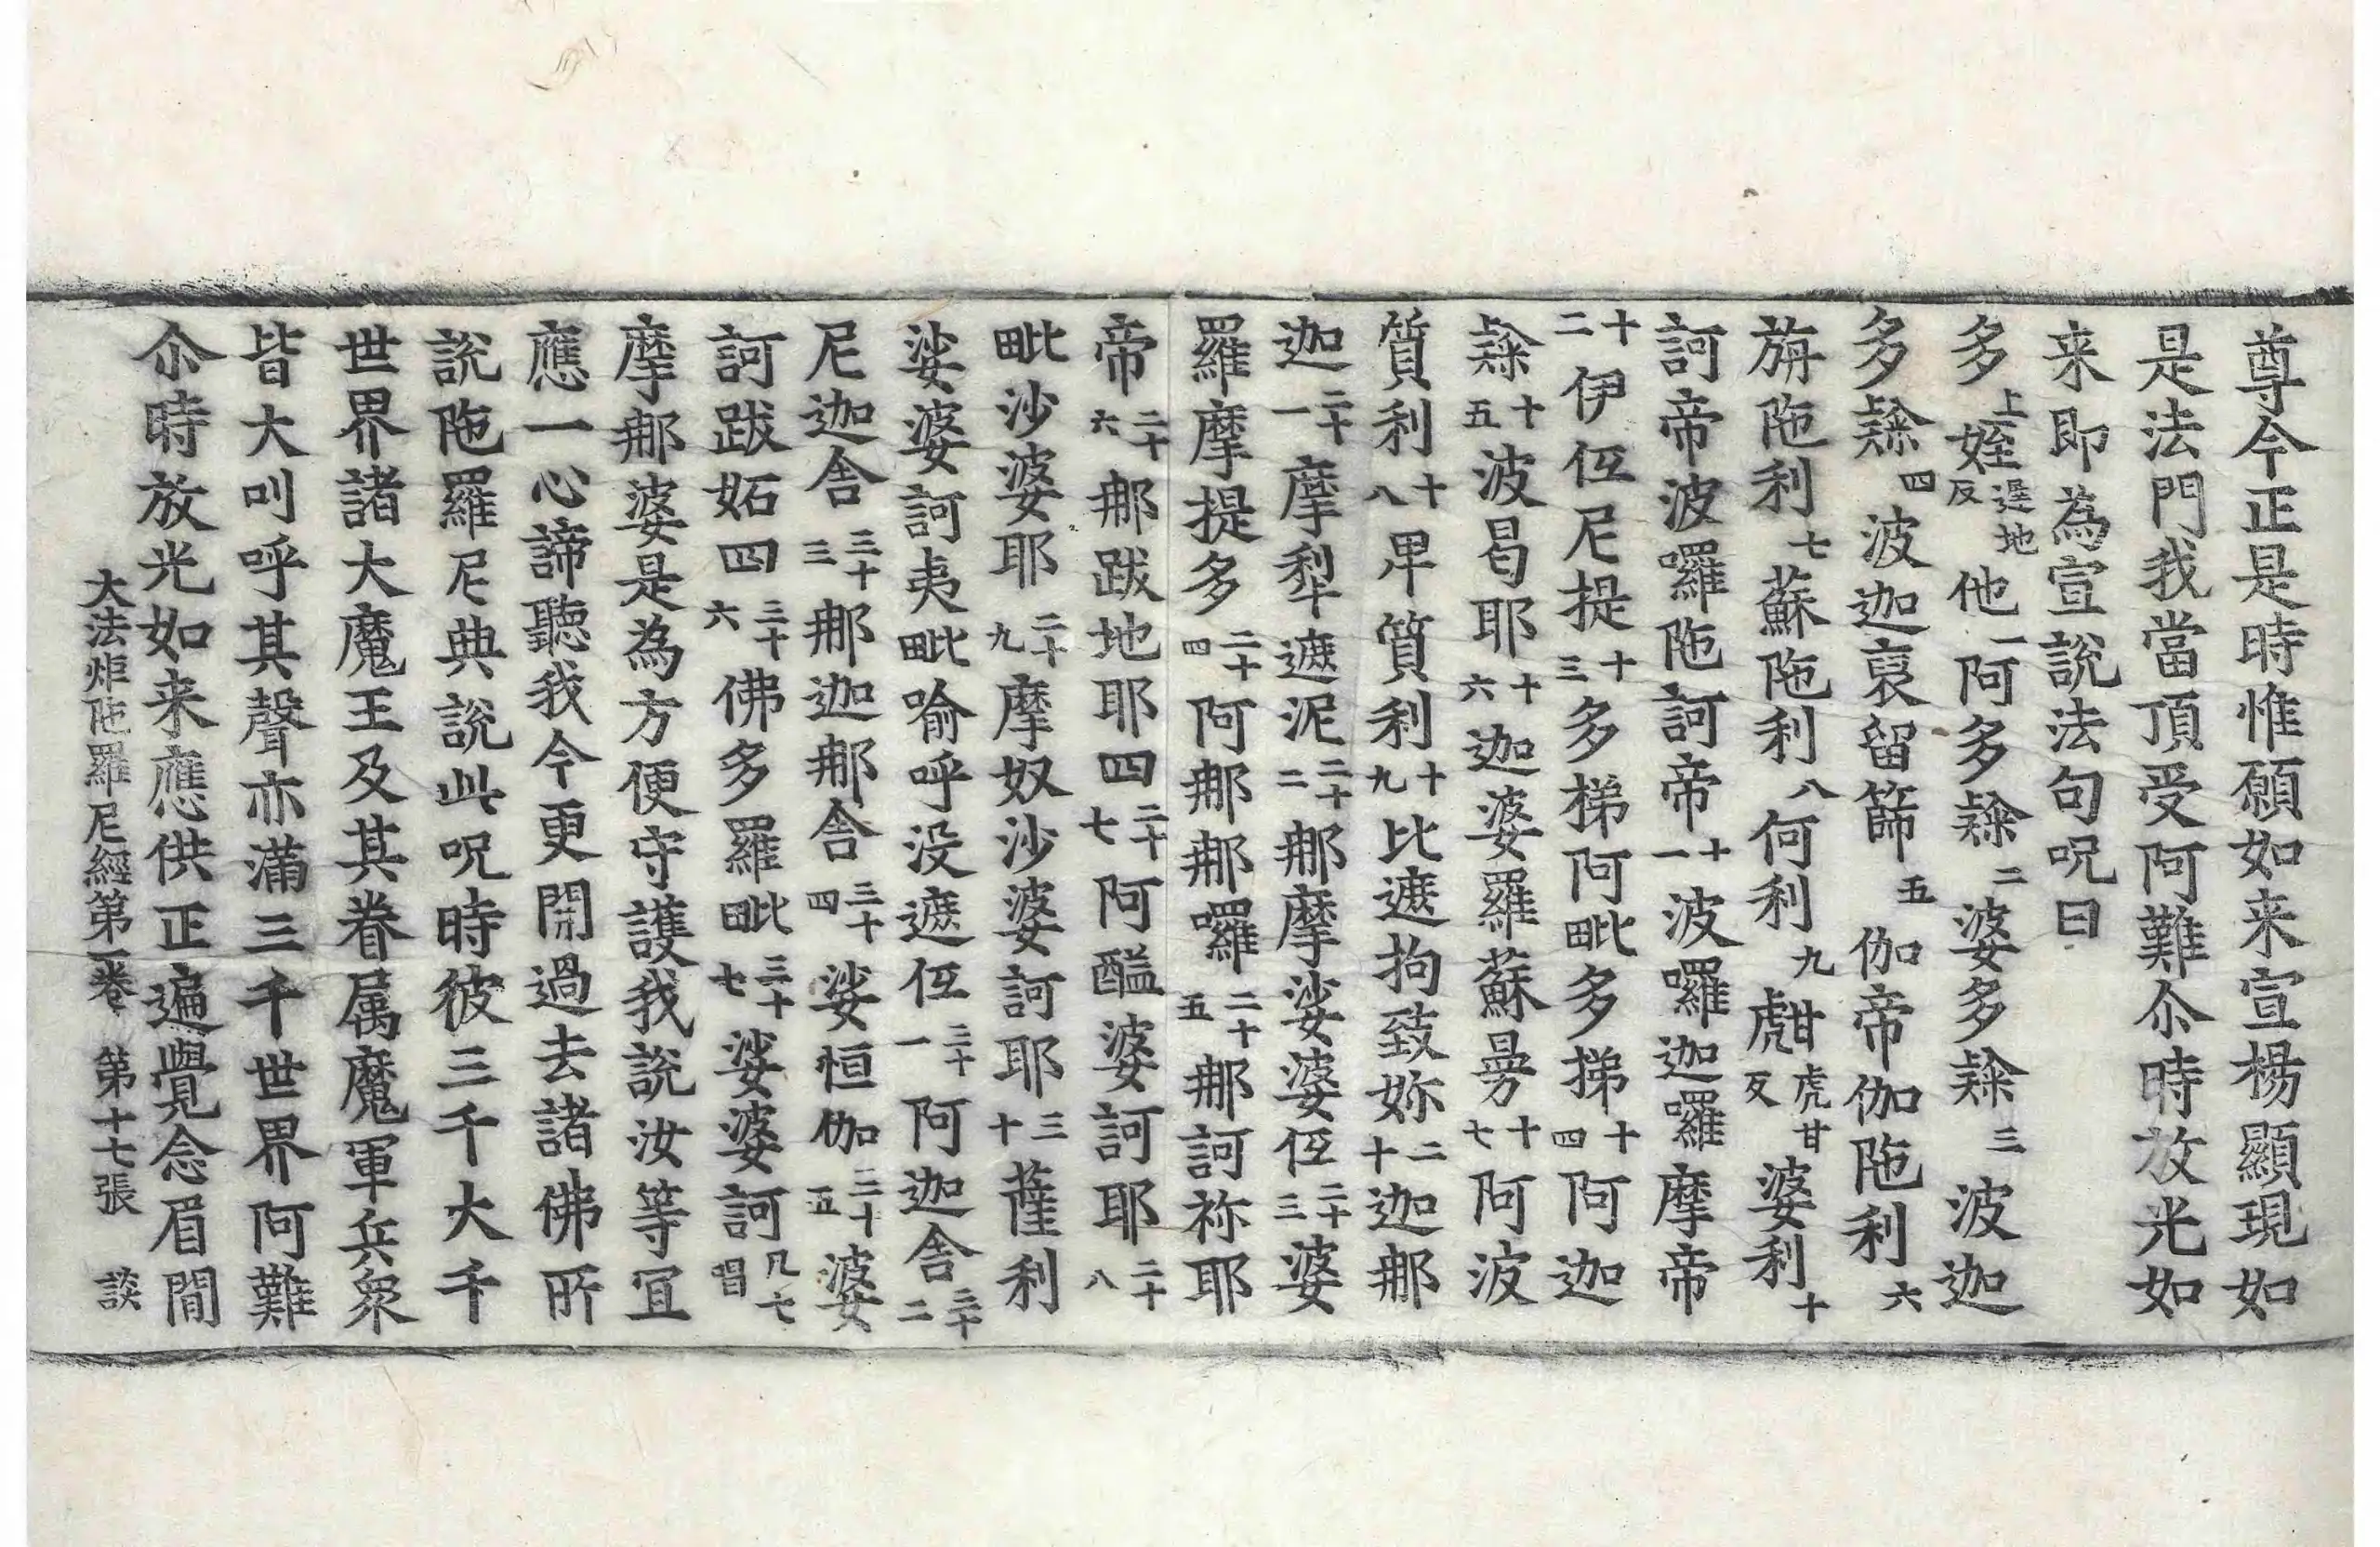 尊今正是時惟願如来宣楊顯現如
是法門我當頂受阿難尒時放光如
来即為宣說法句呪曰
多上姪遅地反他一阿多䟽二婆多䟽三波迦
多䟽四波迦裒留篩五伽帝伽陁利六
旃陁利七蘇陁利八何利九甝虎甘反婆利十
訶帝波囉陁訶帝十一波囉迦囉摩帝
十二伊㐌尼提十三多梯阿毗多梯十四阿迦
䟽十五波曷耶十六迦婆羅蘇曼十七阿波
質利十八畢質利十九比遮拘致妳二十迦郍
迦二十一摩犂遮泥二十二郍摩娑婆㐌二十三婆
羅摩提多二十四阿郍郍囉二十五郍訶祢耶
帝二十六郍跋地耶四二十七阿醯婆訶耶二十八
毗沙婆耶二十九摩奴沙婆訶耶三十薩利
娑婆訶夷毗喻呼没遮㐌三十一阿迦舎三十二
尼迦舎三十三郍迦郍舎三十四娑恒伽三十五婆
訶跋妬四三十六佛多羅毗三十七娑婆訶凡七唱
摩郍婆是為方便守護我說汝等宜
應一心諦聽我今更開過去諸佛所
說陁羅尼典說此呪時彼三千大千
世界諸大魔王及其眷属魔軍兵衆
皆大叫呼其聲亦滿三千世界阿難
尒時放光如来應供正遍覺念眉間
大法炬陁羅尼經第一卷 第十七張 談